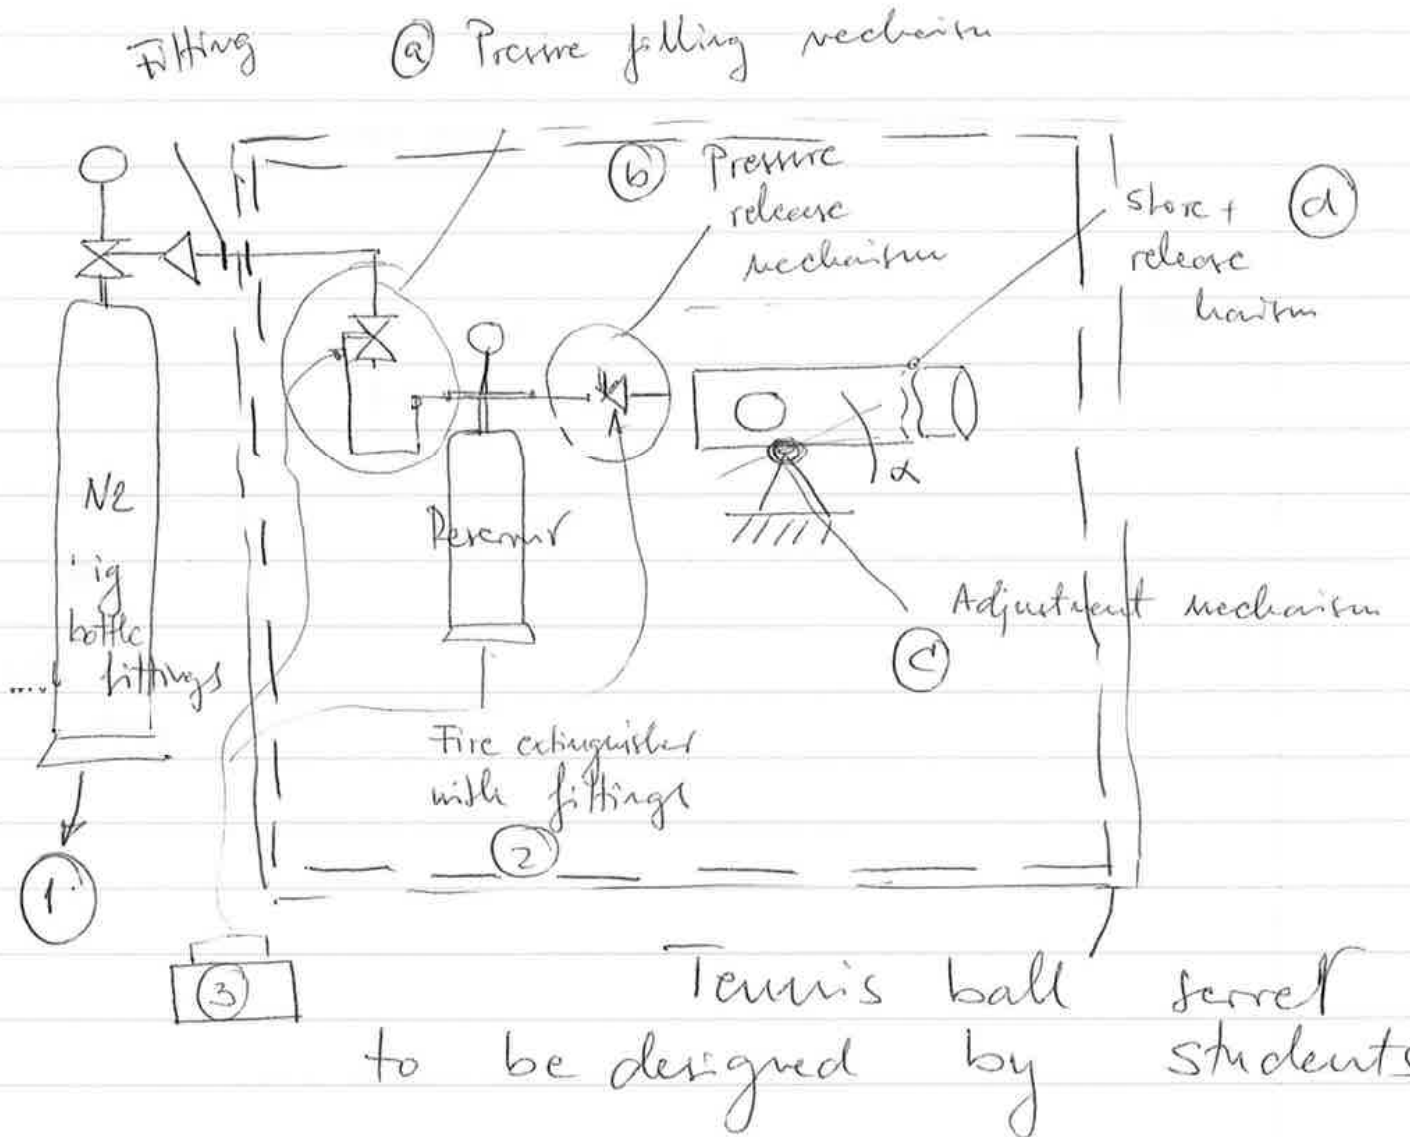 Fitting
(a) Pressure filling mechanism
(b) Pressure
release
mechanism
Store +
release
hanism
(d)
N2
ig
bottle
fittings
Reservoir
α
Adjustment mechanism
(c)
Fire extinguisher
with fittings
(2)
(1)
(3)
Tennis ball server
to be designed by students